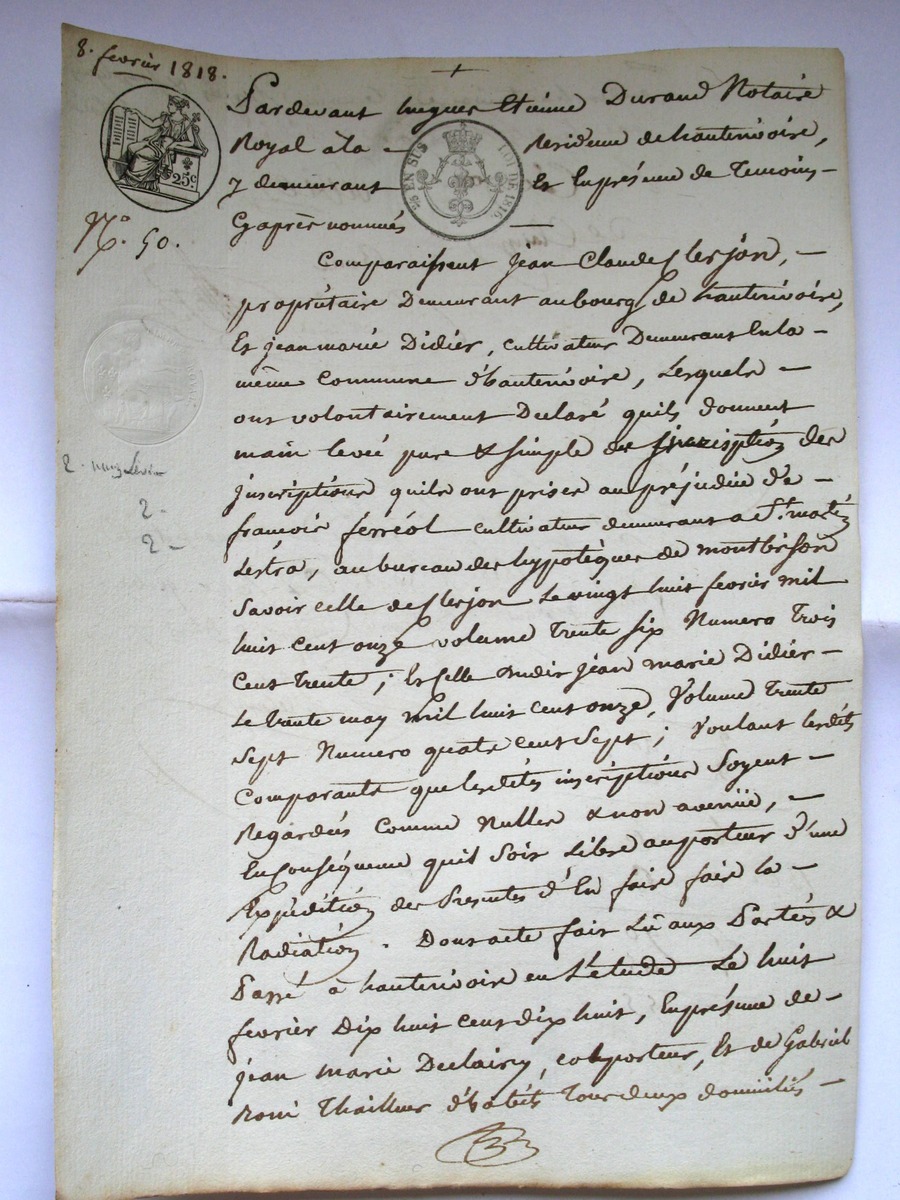 8. fevrier 1818.
Pardevant hugues Etienne Durand Notaire
Royal à la Residence de hauterivoire,
y demeurant Et Enprésence de Temoins
Cyaprès nommés
25 EN SUS LOI DE 1816.
25c.
N.° 50.
Comparaissent jean Claude
propriétaire Demeurant aubourg de hauterivoire,
Et jeanmarie Didier, cultivateur Demeurant Enla
même Commune d'hauterivoire, Lesquels
ont volontairement Declaré quils donnent
main levée pure & simple des
jnscriptions quils ont prises aupréjudice de
francois ferréol cultivateur demeurant a St. martin
Lestra, aubureau des hypotèques de montbrison
Savoir celle de Le vingt huit fevrier mil
huit cent onze volume Trente six Numero Trois
Cent Trente; Et Celle dudit jean marie Didier
Le Trente may mil huit cent onze, Volume Trente
Sept Numero quatre cent Sept; Voulant lesdits
Comparants que lesdites inscriptions Soyent
Regardées Comme Nulles & non avenüe,
En Conséquence quil Soit Libre auporteur d'une
Expédition des Presentes d'En faire faire la
Radiation. Dont acte fait Lû aux Parties &
Passé à hauterivoire en L'étude Le huit
fevrier Dix huit cent dix huit, Enprésence de
jean marie colporteur, Et de Gabriel
Thailleur d'habits Tous deux domiciliés
2
2